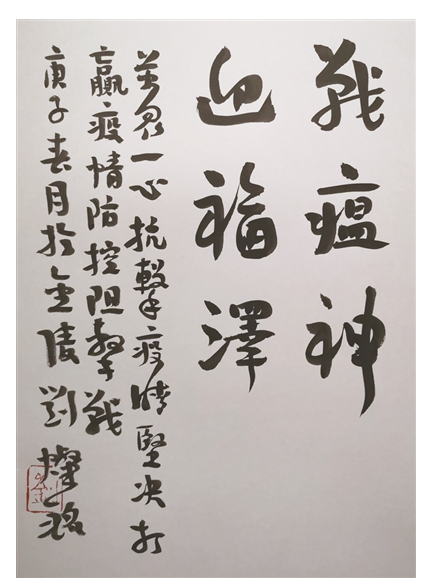 戰瘟神
迎福澤
萬衆一心抗擊疫情堅决打
贏疫情防控阻擊戰
庚子春月於金陵劉燦銘